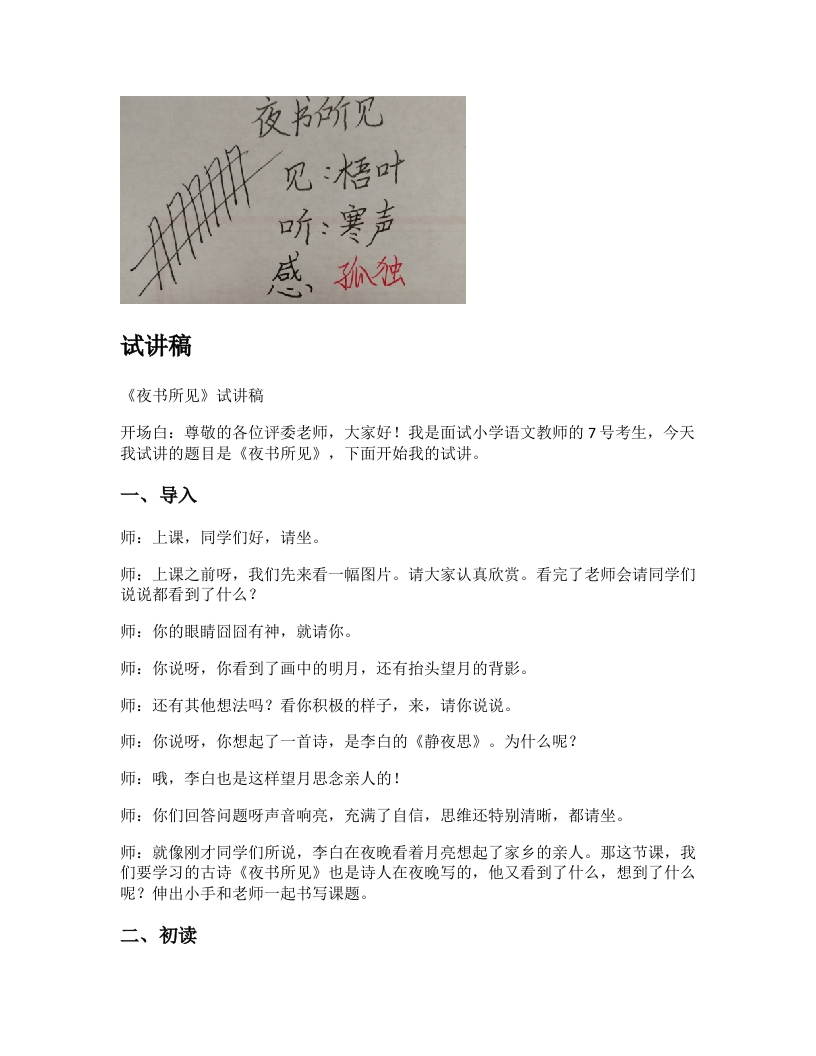 夜书所见
见：梧叶
听：寒声
感 孤独
试讲稿
《夜书所见》试讲稿
开场白：尊敬的各位评委老师，大家好！我是面试小学语文教师的 7 号考生，今天
我试讲的题目是《夜书所见》，下面开始我的试讲。
一、导入
师：上课，同学们好，请坐。
师：上课之前呀，我们先来看一幅图片。请大家认真欣赏。看完了老师会请同学们
说说都看到了什么？
师：你的眼睛囧囧有神，就请你。
师：你说呀，你看到了画中的明月，还有抬头望月的背影。
师：还有其他想法吗？看你积极的样子，来，请你说说。
师：你说呀，你想起了一首诗，是李白的《静夜思》。为什么呢？
师：哦，李白也是这样望月思念亲人的！
师：你们回答问题呀声音响亮，充满了自信，思维还特别清晰，都请坐。
师：就像刚才同学们所说，李白在夜晚看着月亮想起了家乡的亲人。那这节课，我
们要学习的古诗《夜书所见》也是诗人在夜晚写的，他又看到了什么，想到了什么
呢？伸出小手和老师一起书写课题。
二、初读